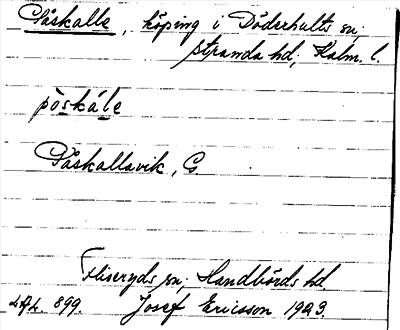 Påskalle, köping i Döderhults sn,
Stranda hd, Kalm. l.
påskále
Påskallavik, G.
Fliseryds sn, Handbörds hd.
899. Josef Ericsson 1923.